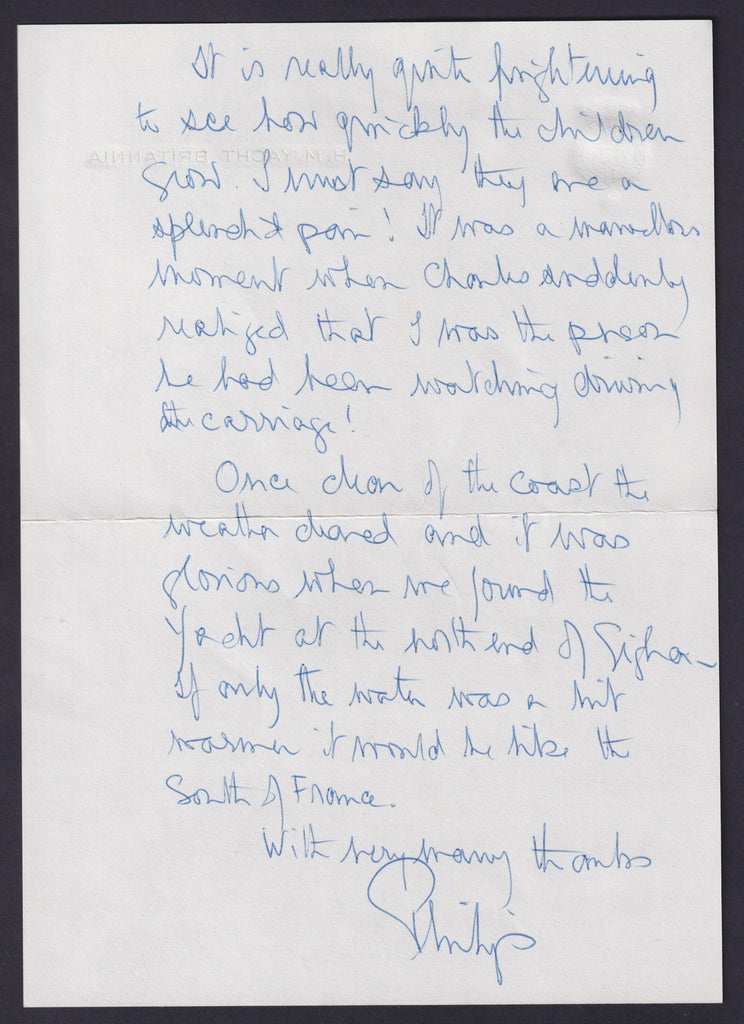 It is really quite frightening
to see how quickly the children
H.M. YACHT BRITANNIA
grow. I must say they are a
splendid pair! It was a marvellous
moment when Charles suddenly
realized that I was the person
he had been watching driving
the carriage!
Once clear of the coast the
weather cleared and it was
glorious when we found the
Yacht at the north end of Gigha -
If only the water was a bit
warmer it would be like the
South of France.
With very many thanks
Philip